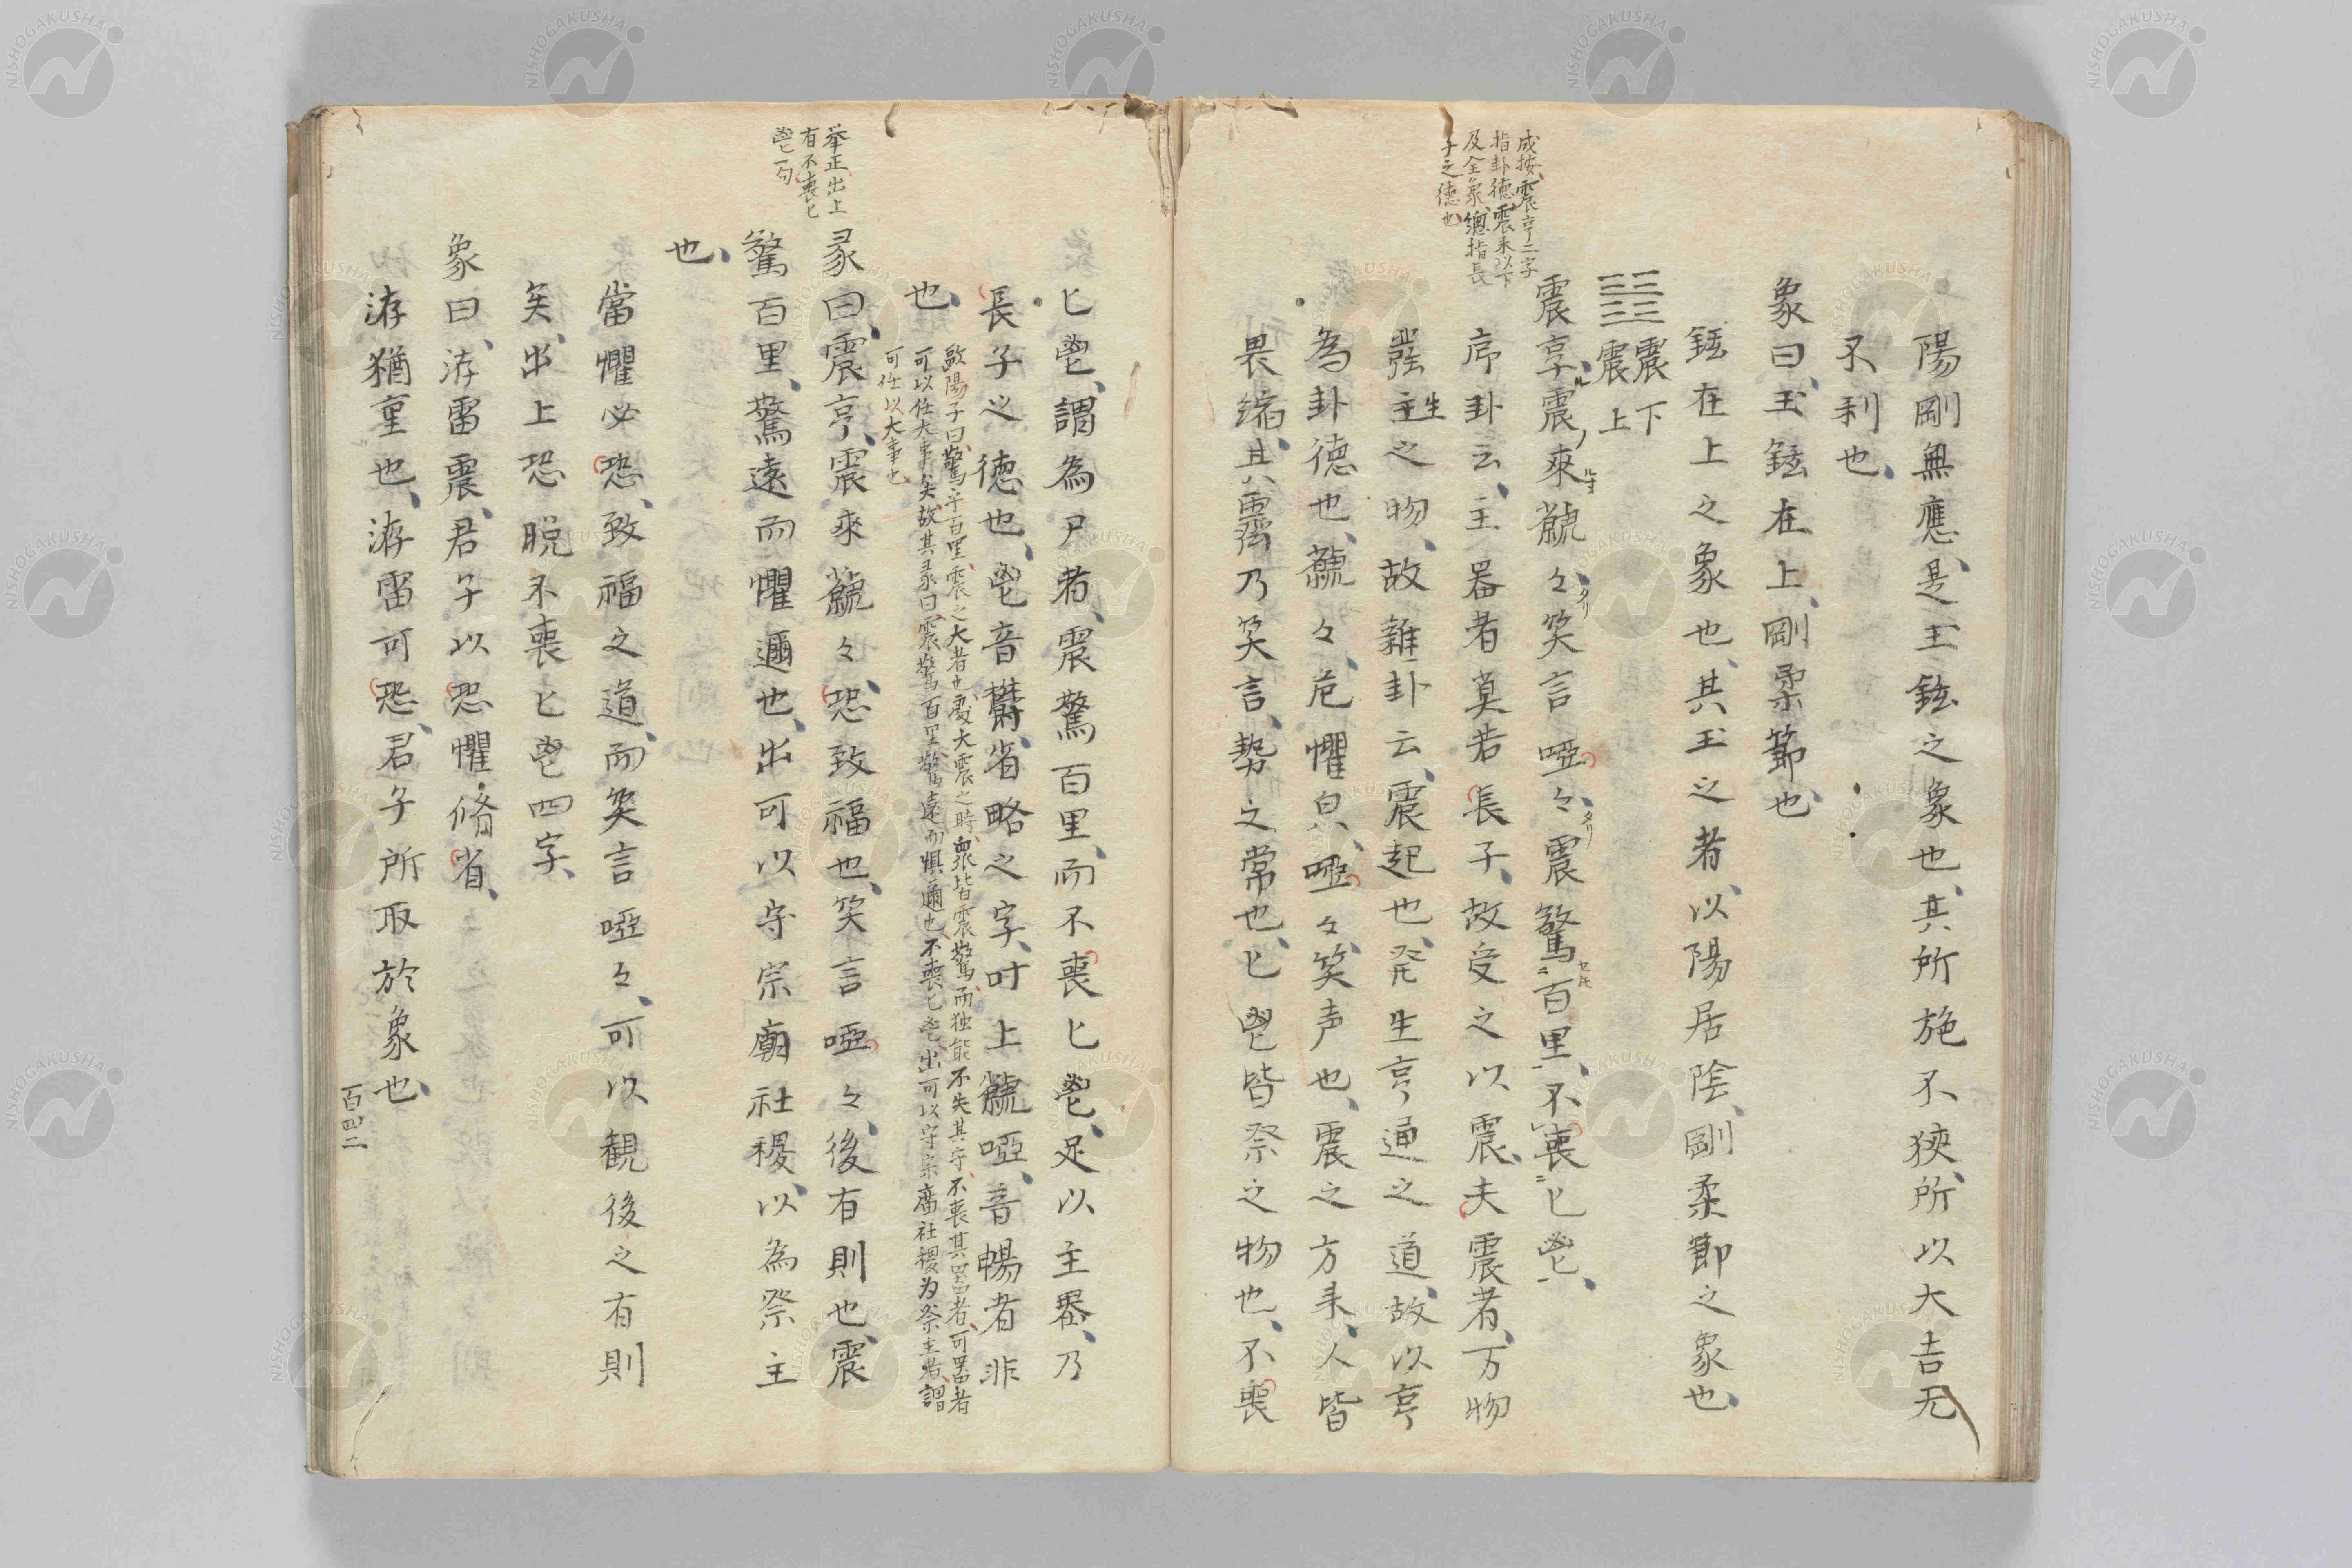 陽剛無應、是玉鉉之象也、其所施不狹、所以大吉无
不利也、
象曰、玉鉉在上、剛柔節也、
鉉在上之象也、其玉之者、以陽居陰、剛柔節之象也、
震下
震上
成按、震亨二字
指卦德、震来以下
及全象、總指長
子之德也、
震亨、震來虩々、笑言啞々、震驚百里、不喪匕鬯、
ル
ノ
タリ
タリ
序卦云、主器者莫若長子、故受之以震、夫震者、万物
發主之物、故雜卦云、震起也、発生亨通之道、故以亨
生
為卦德也、虩々、危懼皃、啞々、笑声也、震之方来、人皆
畏縮、其震霽乃笑言、勢之常也、匕鬯皆祭之物也、不喪
匕鬯、謂為尸者、震驚百里、而不喪匕鬯、足以主噐、乃
長子之德也、鬯音欝、省略之字、叶上虩啞、音暢者非
也、
歐陽子曰、驚乎百里、震之大者也、處大震之時、衆皆震驚、而独能不失其守、不喪其噐者、可噐者
可以任大事矣、故其彖曰、震驚百里、驚遠而懼邇也、不喪匕鬯、出可以守宗廟社稷为祭主者、謂
可任以大事也
举正出上
有不喪匕
鬯一句
彖曰、震亨、震來虩々、恐致福也、笑言啞々、後有則也、震
驚百里、驚遠而懼邇也、出可以守宗廟社稷、以為祭主
也、
當懼必恐、致福之道、而笑言啞々、可以観後之有則
矣、出上恐脱不喪匕鬯四字、
象曰、洊雷震、君子以恐懼脩省、
洊猶重也、洊雷可恐、君子所取於象也、
百四二
NISHOGAKUSHA